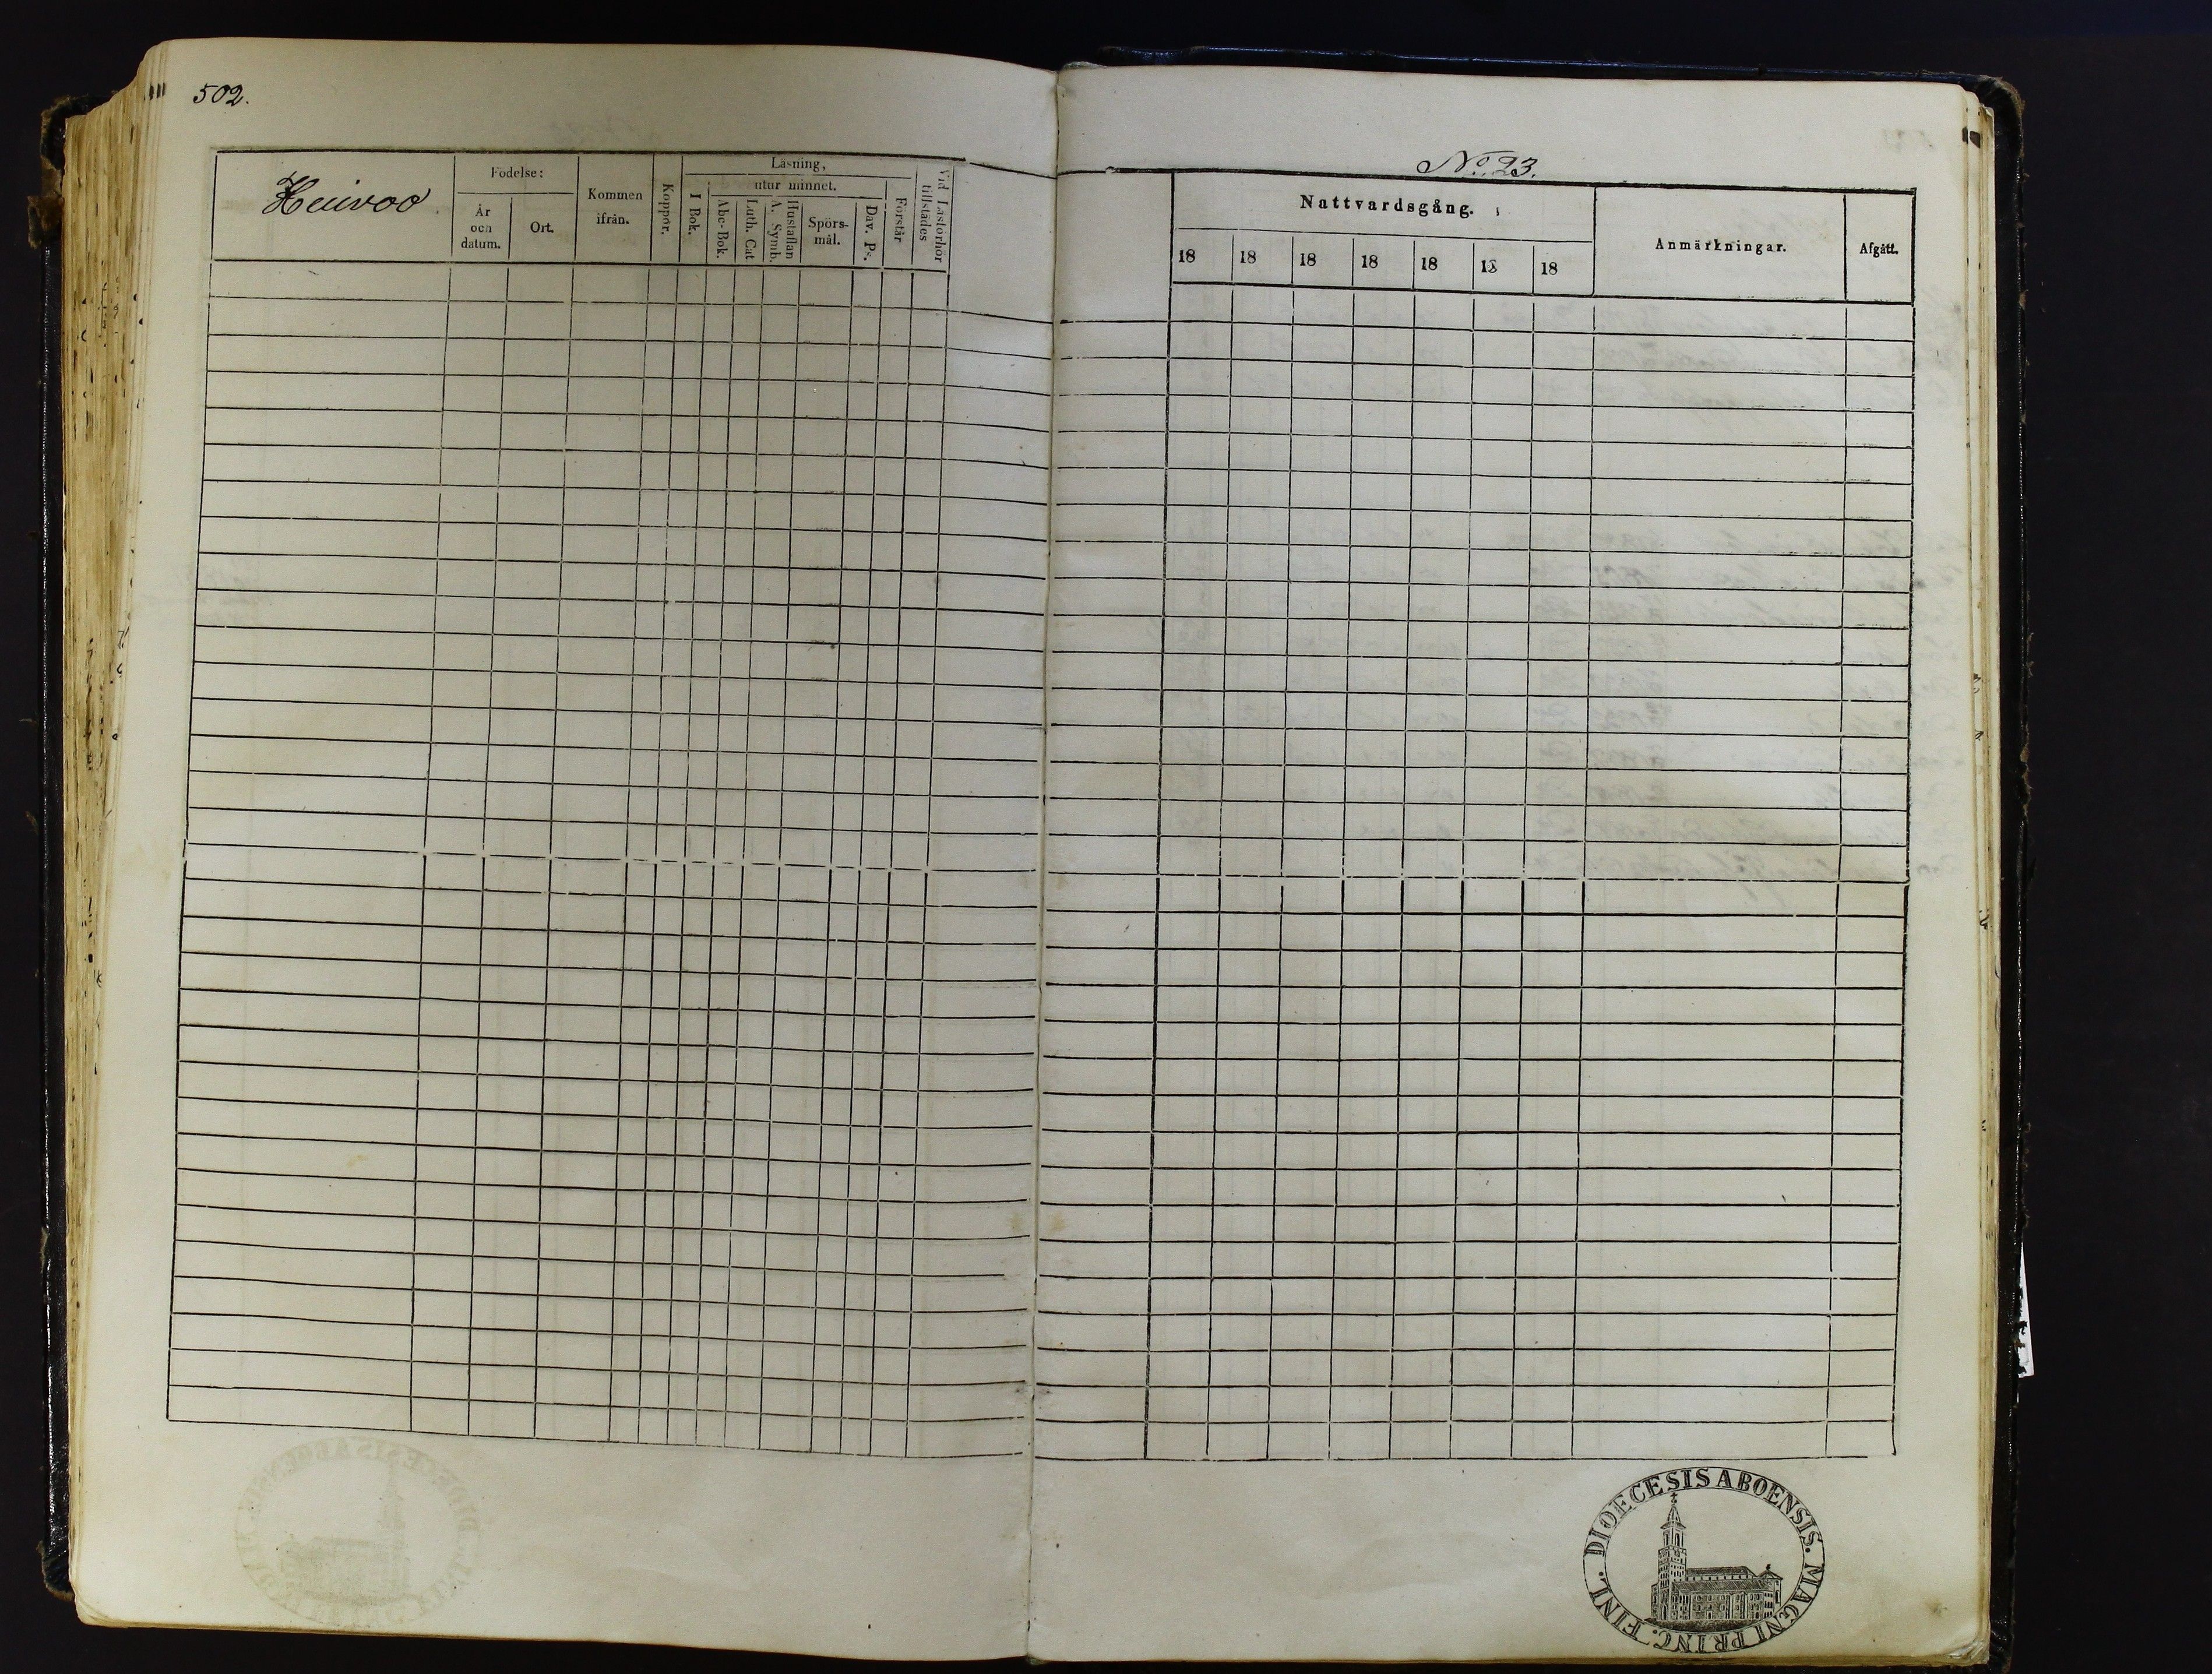 502.
Heiivoo
Födelse:
År
och
datum.
Ort.
Kommen
ifrån.
Koppor.
Läsning,
I Bok.
utur minnet.
Abc-Bok.
Luth. Cat
Hustaflan
A. Symb.
Spörs-
mål.
Dav. Ps.
Förstår
Vid Läsförhör
tillstädes
No. 23.
Nattvardsgång.
18 18 18 18 18 18 18
Anmärkningar.
Afgått.
DIOECESIS ABOENSIS. MAGNI PRINC. FINL.